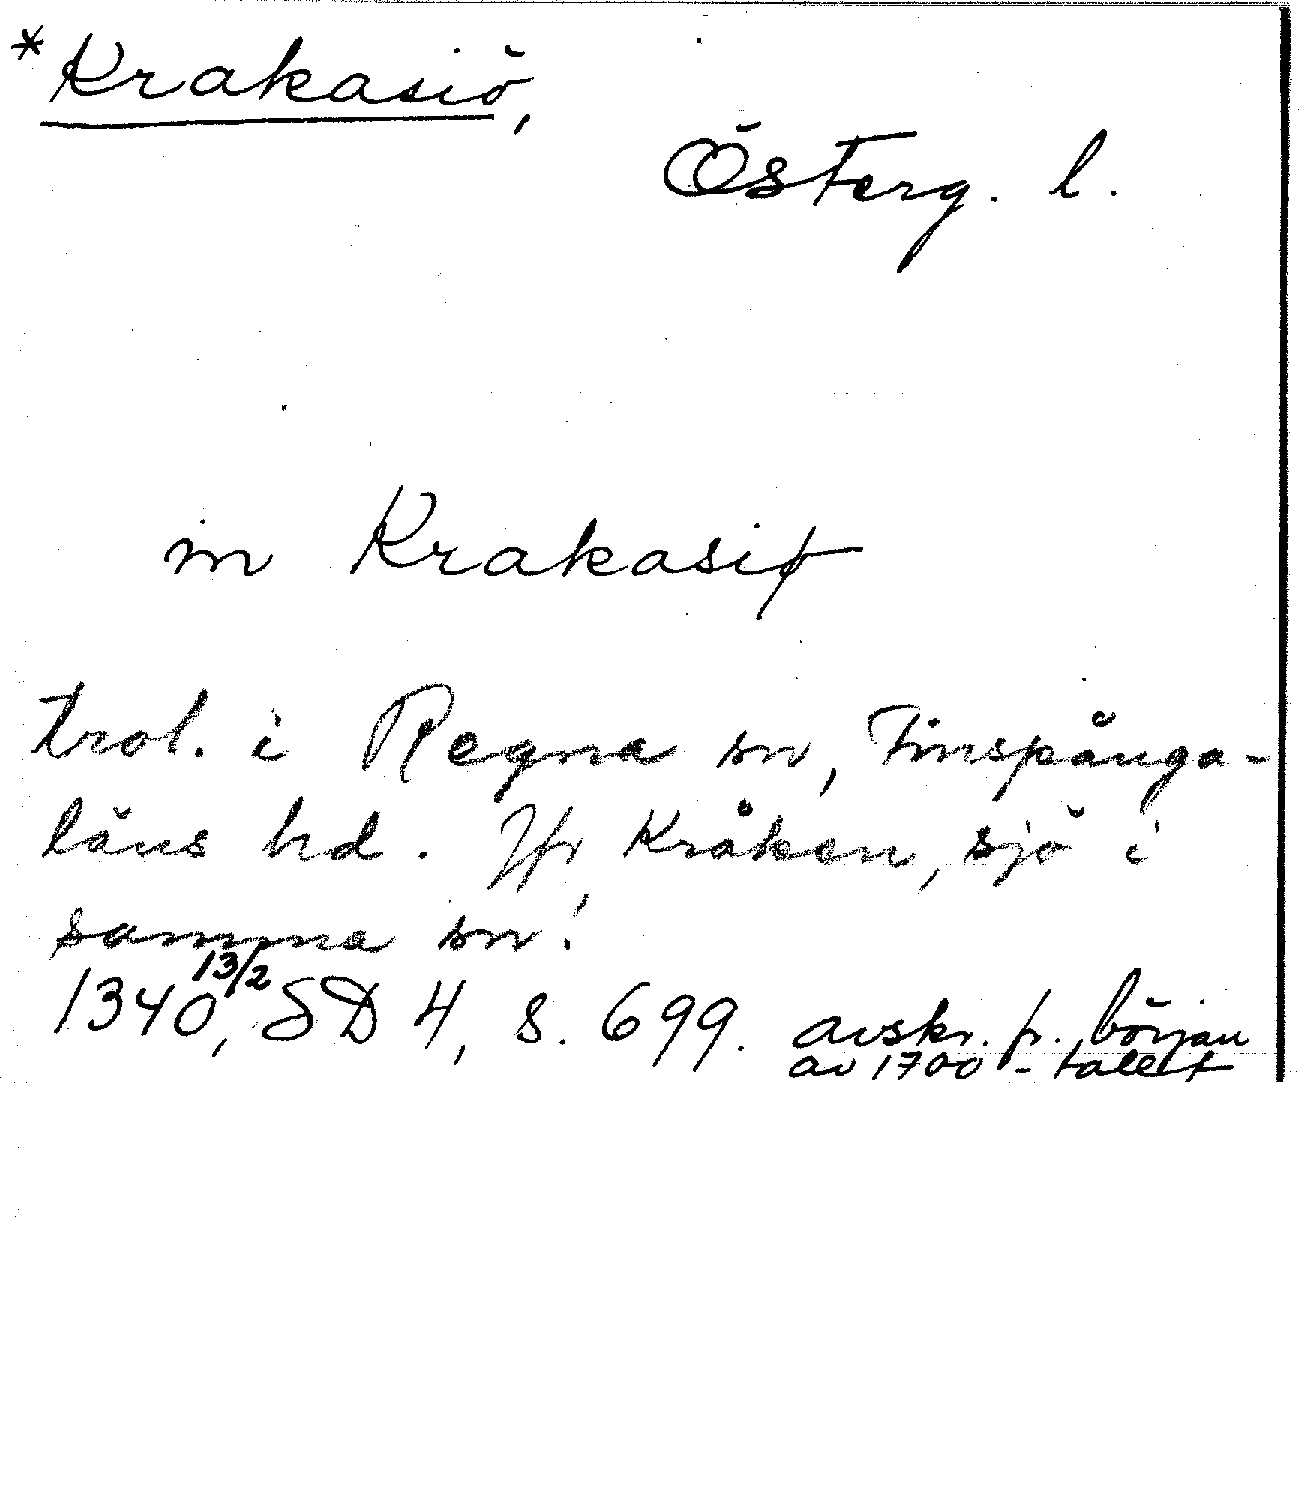 *Krakasiö,
Österg. l.
in Krakasiø
trol. i Regna sn, Finspånga-
läns hd. Jfr Kråken, sjö i
samma sn!
1340 13/2, SD 4, s. 699. avskr. fr. början
av 1700-tallet